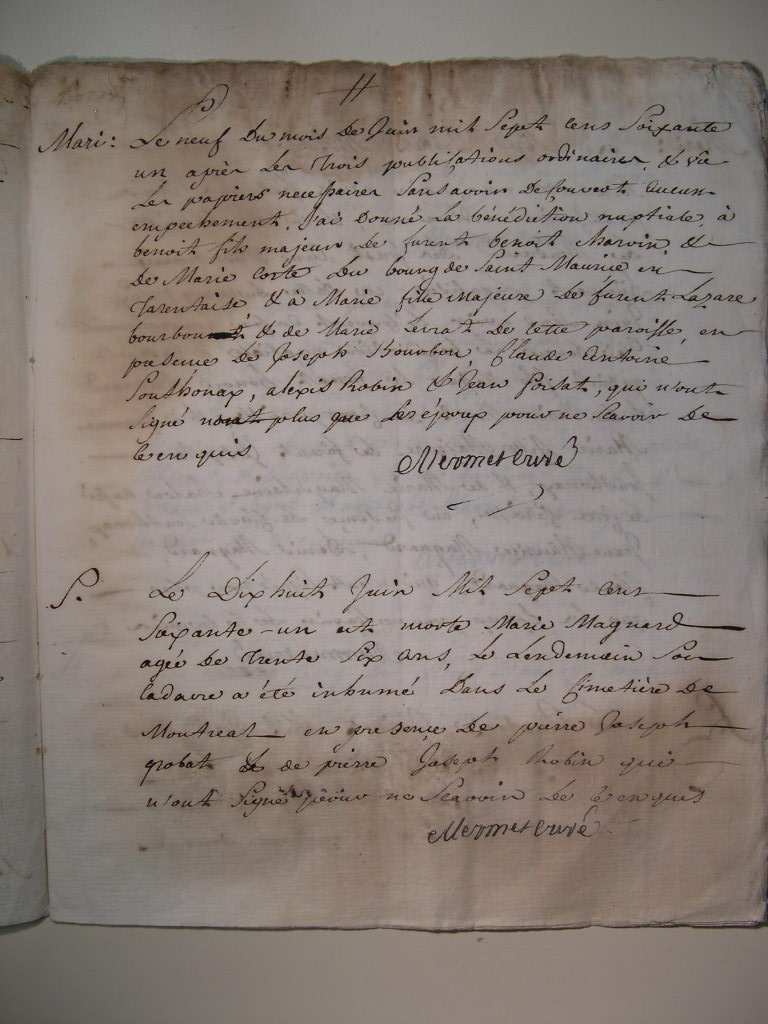 11
Mari: Le neuf Du mois De Juin mil Sept cens Soixante
un après Les Trois publications ordinaires, & vû
Les papiers necessaires Sans avoir Decouvert aucun
empechement, J'ai Donné La bénédiction nuptiale à
benoit fils majeur De furent benoit Marvin &
De Marie Corte Du bourg de Saint Maurice en
Tarentaise & à Marie fille majeure De furent Lazare
bourbon & de Marie Levrat De cette paroisse, en
presence de Joseph Bourbon, Claude Antoine
Southonax, alexis Robin & Jean Goisat, qui n'ont
Signé non plus que Les époux pour ne Scavoir De
ce enquis
Mermet Curé
S. Le Dixhuit Juin Mil Sept cens
Soixante-un est morte Marie Magnard
agée De Trente Six ans, Le Lendemain Son
Cadavre a été inhumé Dans Le Cimetière De
Montreal en presence De pierre Joseph
grobat & de pierre Joseph Robin qui
n'ont Signé pour ne Scavoir De ce enquis
Mermet curé